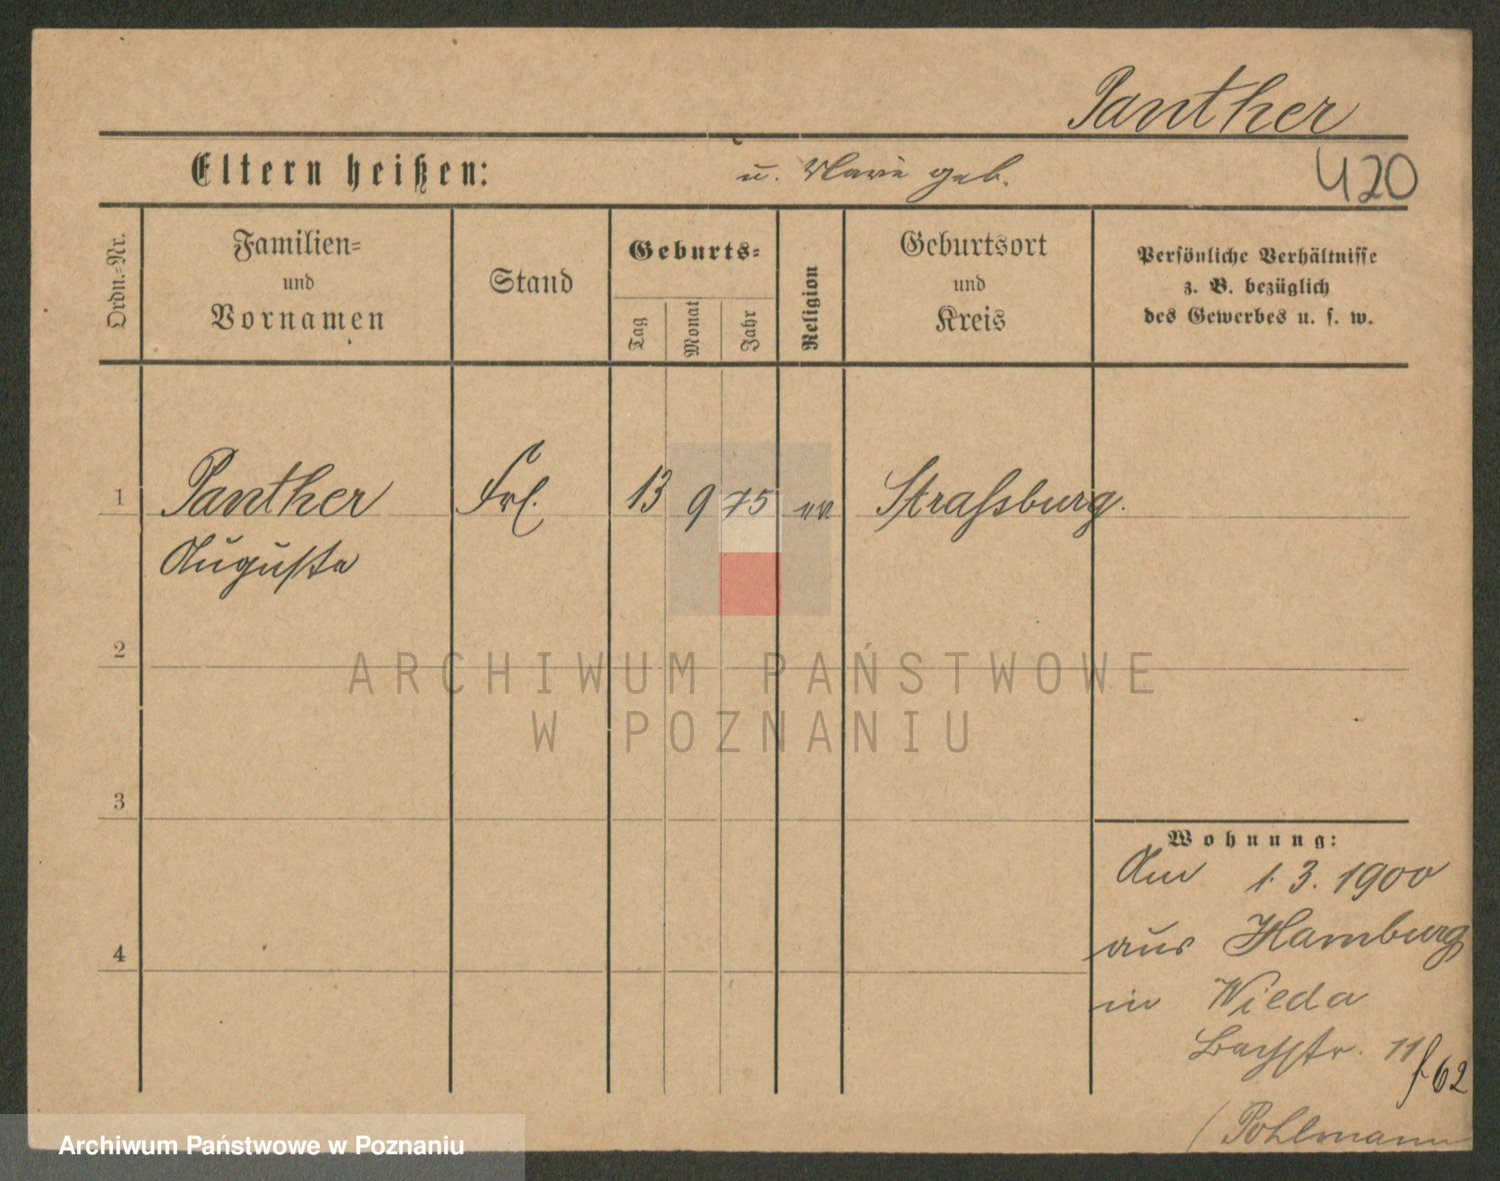 Panther
Eltern heißen: u. Marie geb.
420
Ordn.-Nr.
Familien-
und
Vornamen
Stand
Geburts-
Tag
Monat
Jahr
Religion
Geburtsort
und
Kreis
Persönliche Verhältnisse
z. B. bezüglich
des Gewerbes u. s. w.
1 Panther Frl. 13 9 75 ev. Strassburg.
Auguste
2
3
4
ARCHIWUM PAŃSTWOWE
W POZNANIU
Wohnung:
Am 1. 3. 1900
aus Hamburg
in Wilda
Bachstr. 11
f 62
(Pohlmann
Archiwum Państwowe w Poznaniu